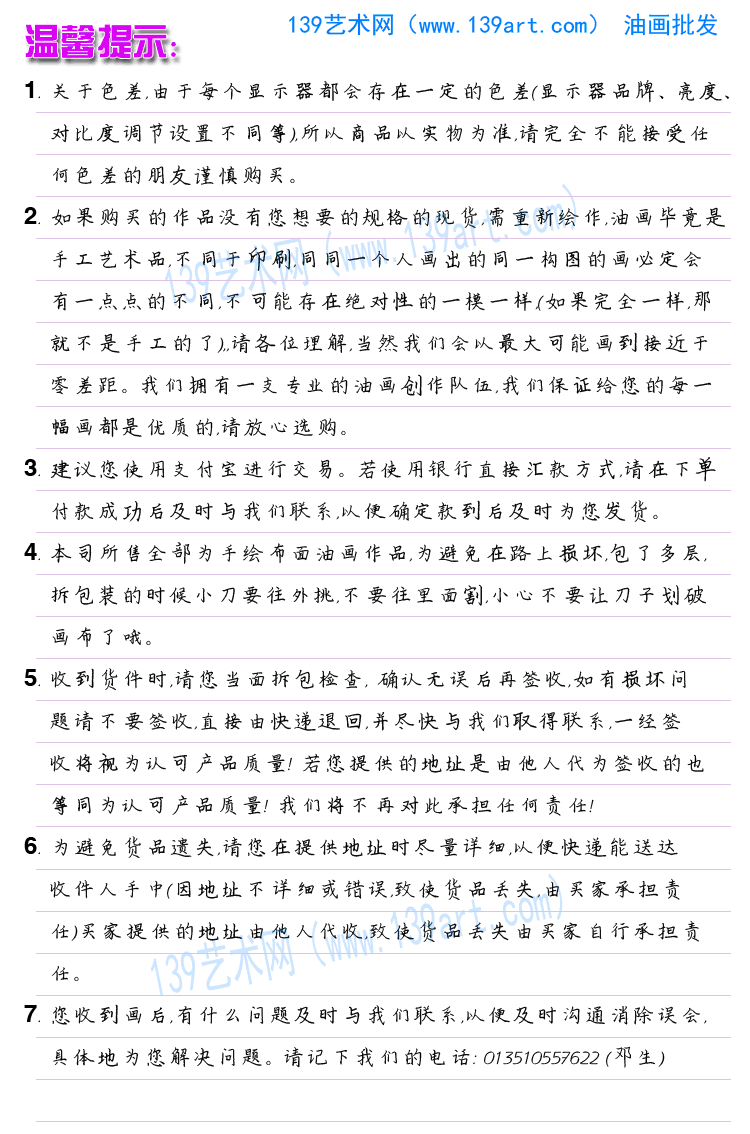 139艺术网（www.139art.com） 油画批发
温馨提示:
1. 关于色差,由于每个显示器都会存在一定的色差(显示器品牌、亮度、
对比度调节设置不同等),所以商品以实物为准,请完全不能接受任
何色差的朋友谨慎购买。
2. 如果购买的作品没有您想要的规格的现货,需重新绘作,油画毕竟是
手工艺术品,不同于印刷,同同一个人画出的同一构图的画必定会
有一点点的不同,不可能存在绝对性的一模一样,(如果完全一样,那
就不是手工的了),请各位理解,当然我们会以最大可能画到接近于
零差距。我们拥有一支专业的油画创作队伍,我们保证给您的每一
幅画都是优质的,请放心选购。
3. 建议您使用支付宝进行交易。若使用银行直接汇款方式,请在下单
付款成功后及时与我们联系,以便确定款到后及时为您发货。
4. 本司所售全部为手绘布面油画作品,为避免在路上损坏,包了多层,
拆包装的时候小刀要往外挑,不要往里面割,小心不要让刀子划破
画布了哦。
5. 收到货件时,请您当面拆包检查, 确认无误后再签收,如有损坏问
题请不要签收,直接由快递退回,并尽快与我们取得联系,一经签
收将视为认可产品质量! 若您提供的地址是由他人代为签收的也
等同为认可产品质量! 我们将不再对此承担任何责任!
6. 为避免货品遗失,请您在提供地址时尽量详细,以便快递能送达
收件人手中(因地址不详细或错误,致使货品丢失,由买家承担责
任)买家提供的地址由他人代收,致使货品丢失由买家自行承担责
任。
7. 您收到画后,有什么问题及时与我们联系,以便及时沟通消除误会,
具体地为您解决问题。请记下我们的电话: 013510557622 (邓生)
139艺术网（www.139art.com）
139艺术网（www.139art.com）